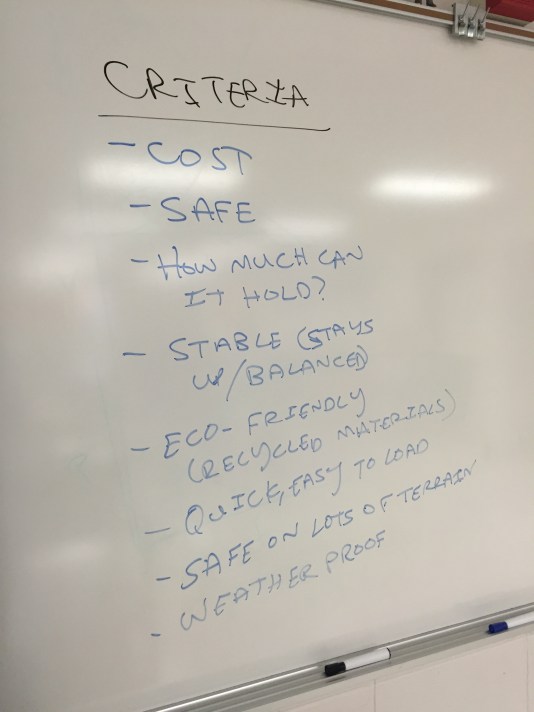 CRITERIA
- COST
- SAFE
- HOW MUCH CAN
IT HOLD?
- STABLE (STAYS
UP/BALANCED)
- ECO-FRIENDLY
(RECYCLED MATERIALS)
- QUICK, EASY TO LOAD
- SAFE ON LOTS OF TERRAIN
- WEATHER PROOF